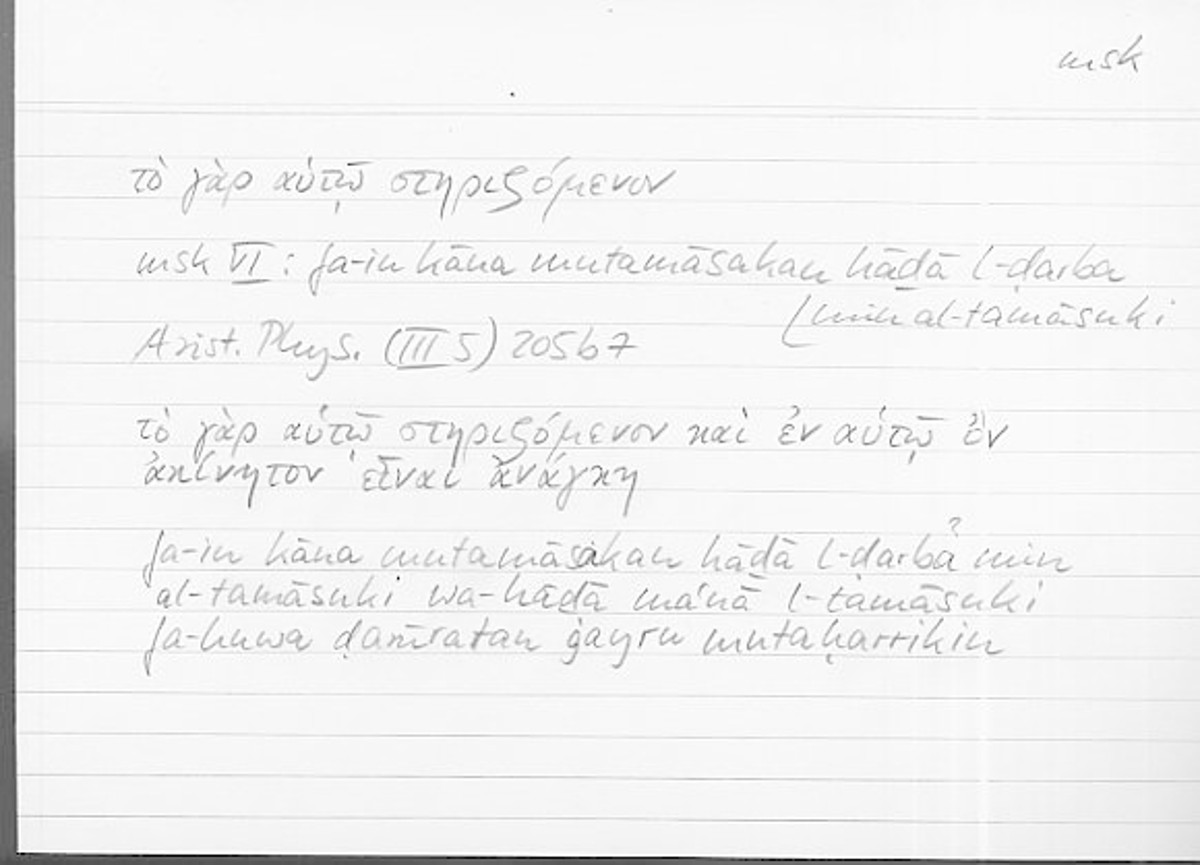 msk
τὸ γὰρ αὑτῷ στηριζόμενον
msk VI: fa-in kāna mutamāsakan hāḏā l-ḍarba
(min al-tamāsuki
Arist. Phys. (III 5) 205b7
τὸ γὰρ αὑτῷ στηριζόμενον καὶ ἐν αὑτῷ ὂν
ἀκίνητον εἶναι ἀνάγκη
fa-in kāna mutamāsikan hāḏā l-ḍarba? min
al-tamāsuki wa-hāḏā maʿnā l-tamāsuki
fa-huwa ḍarūratan ġayru mutaḥarrikin